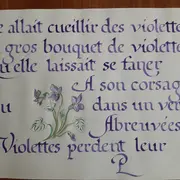 allait cueillir des violettes
gros bouquet de violette
elle laissait se faner
A son corsage
dans un ve
Abreuvées
Violettes perdent leur
PL